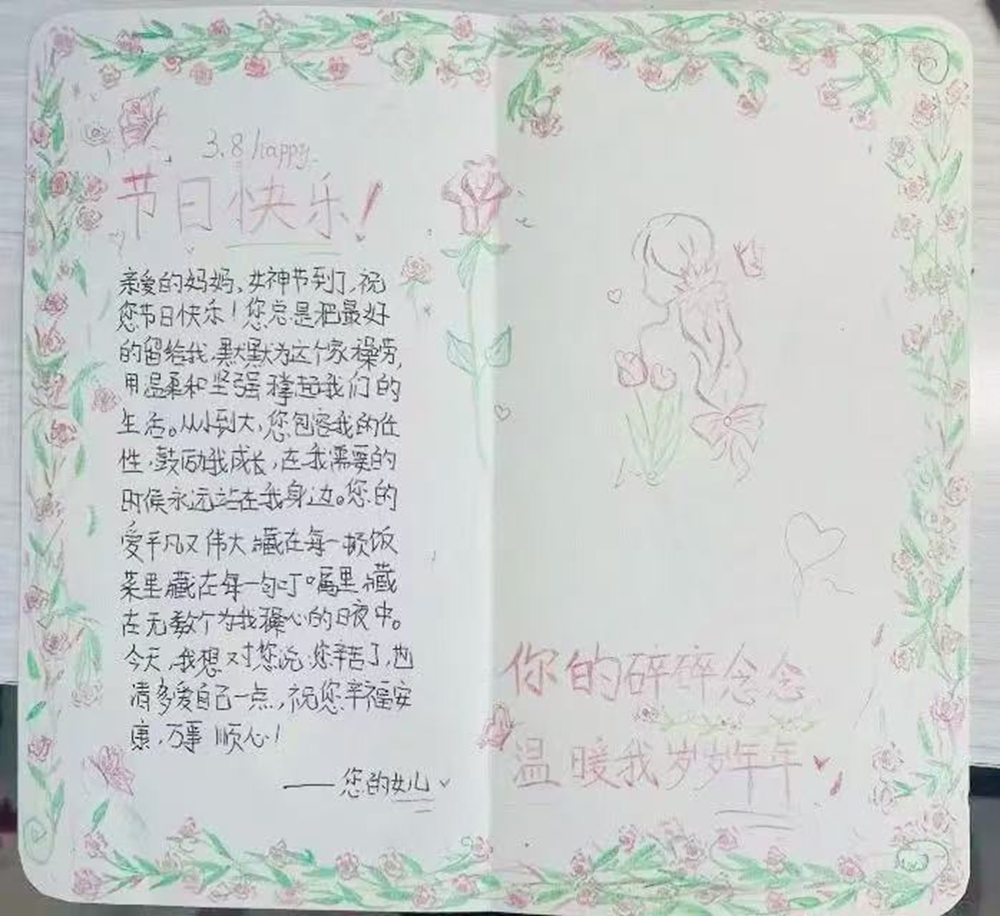 3.8 happy.
节日快乐!
亲爱的妈妈,女神节到了,祝
您节日快乐!您总是把最好
的留给我,默默为这个家操劳,
用温柔和坚强撑起我们的
生活。从小到大,您包容我的任
性,鼓励我成长,在我需要的
时候永远站在我身边。您的
爱平凡又伟大藏在每一顿饭
菜里藏在每一句叮嘱里,藏
在无数个为我操心的日夜中。
今天,我想对您说,您辛苦了,也
请多爱自己一点,祝您幸福安
康,万事顺心!
——您的女儿
你的碎碎念念
温暖我岁岁年年